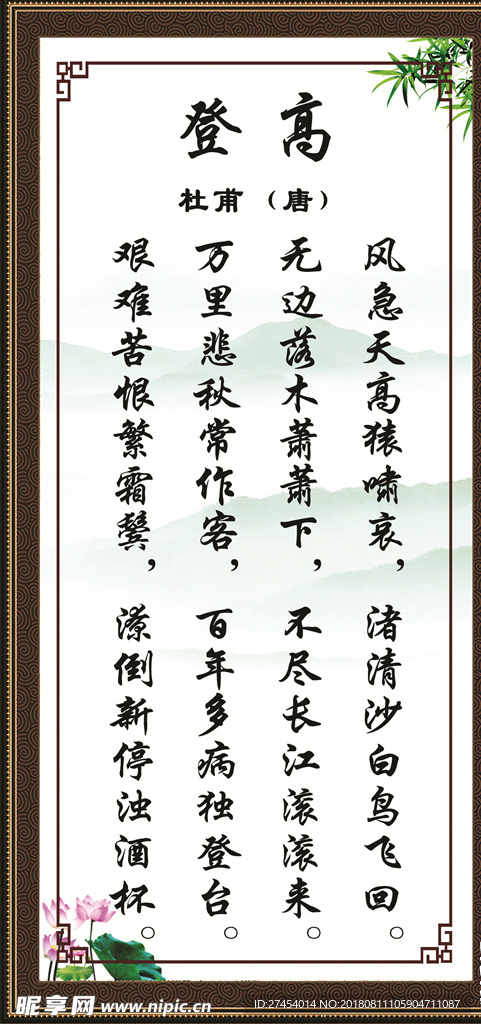 登高
杜甫（唐）
风急天高猿啸哀，渚清沙白鸟飞回。
无边落木萧萧下，不尽长江滚滚来。
万里悲秋常作客，百年多病独登台。
艰难苦恨繁霜鬓，潦倒新停浊酒杯。
昵享网 www.nipic.cn
ID:27454014 NO:20180811105904711087